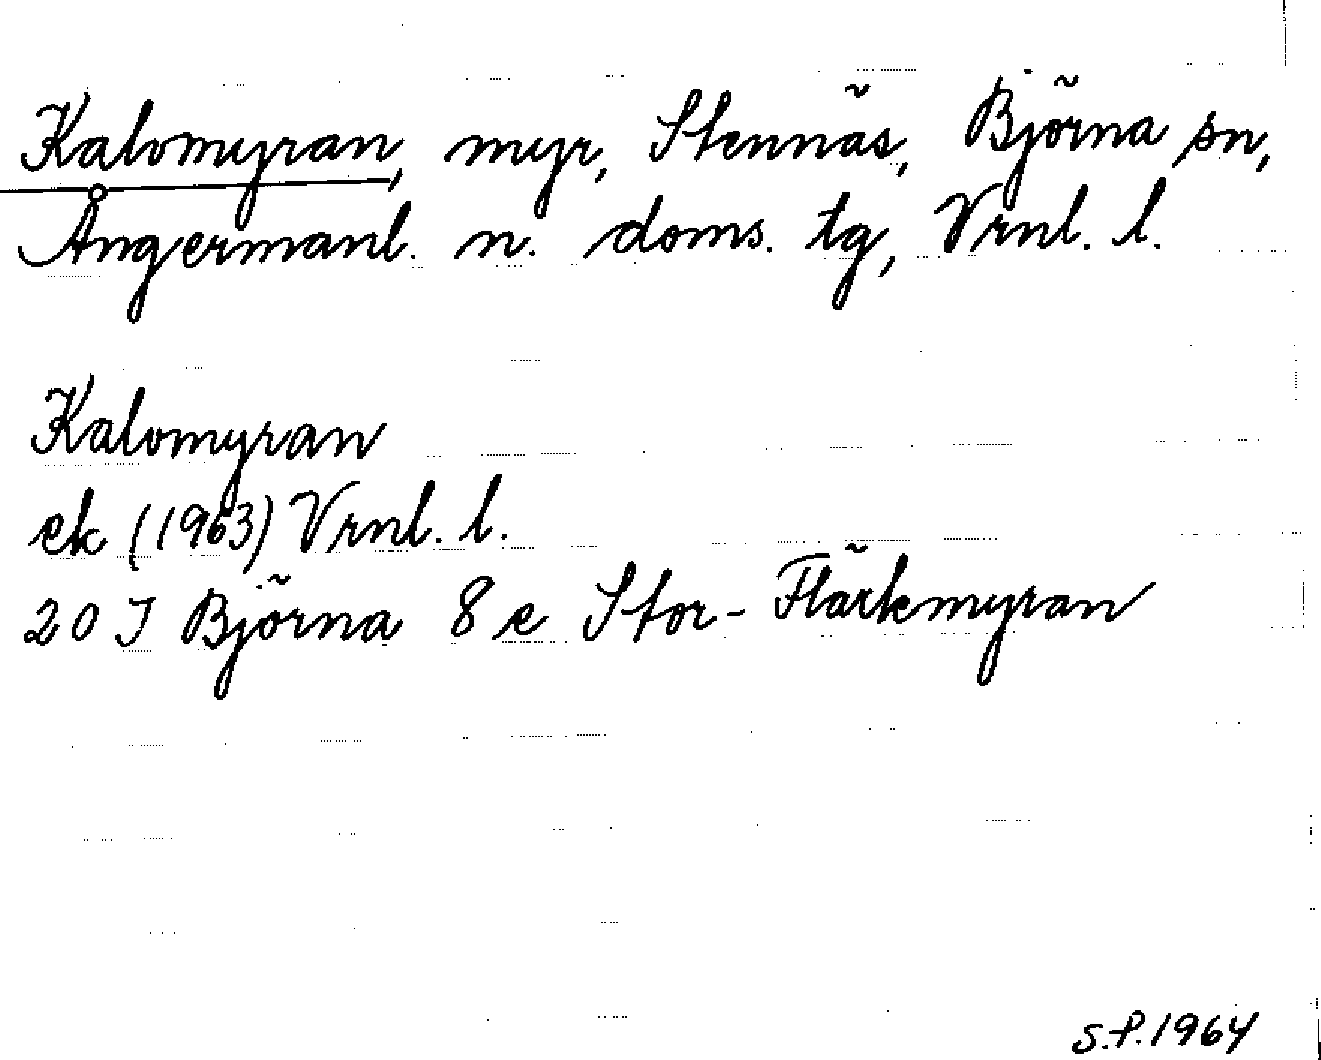 Kalomyran, myr, Stennäs, Björna sn,
Ångermanl. n. doms. tg, Vrnl. l.
Kalomyran
ek (1963) Vrnl. l.
20 J Björna 8 e Stor-Flärkmyran
S.P. 1964